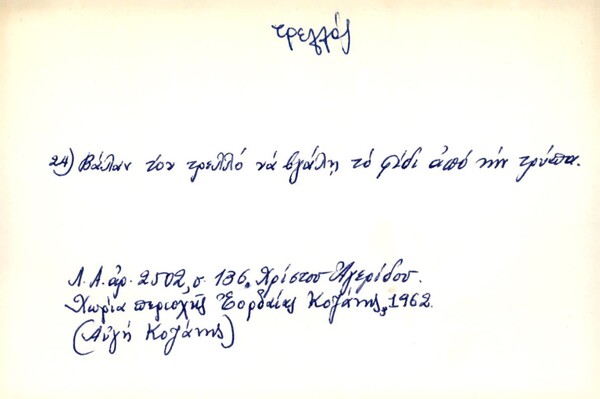 τρελλός
24) Βάλαν τον τρελλό νά βγάλη τό φίδι ἀπό τήν τρύπα.
Λ.Α. ἀρ. 2502, σ. 136, Χρίστου Ἀγερίδου.
Χωρία περιοχῆς Ἐορδαίας Κοζάνης, 1962.
(Αὐγή Κοζάνης)